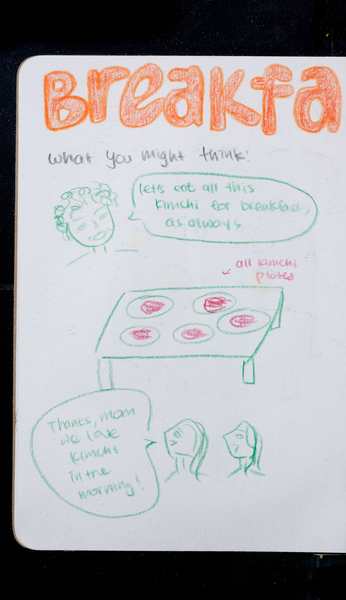 Breakfa
what you might think:
let's eat all this
kimchi for breakfast,
as always
all kimchi
plates
Thanks, mom
we love
kimchi
in the
morning!